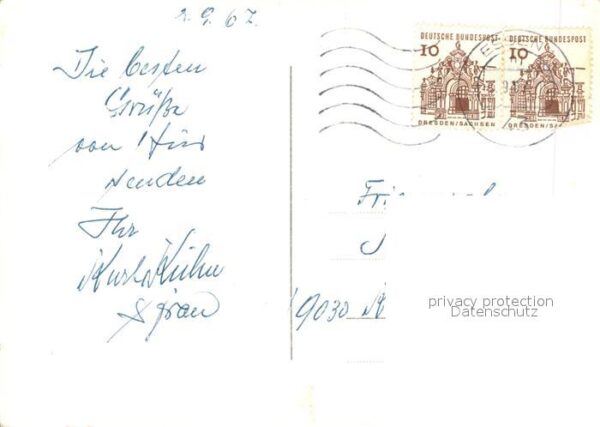 2.9.67.
DEUTSCHE BUNDESPOST
DEUTSCHE BUNDESPOST
10
10
ESSEN
DRESDEN/SACHSEN
DRESDEN/SACHSEN
Die besten
Grüße
von Hier
senden
Ihr
Karl Kühn
& Frau
9030
privacy protection
Datenschutz